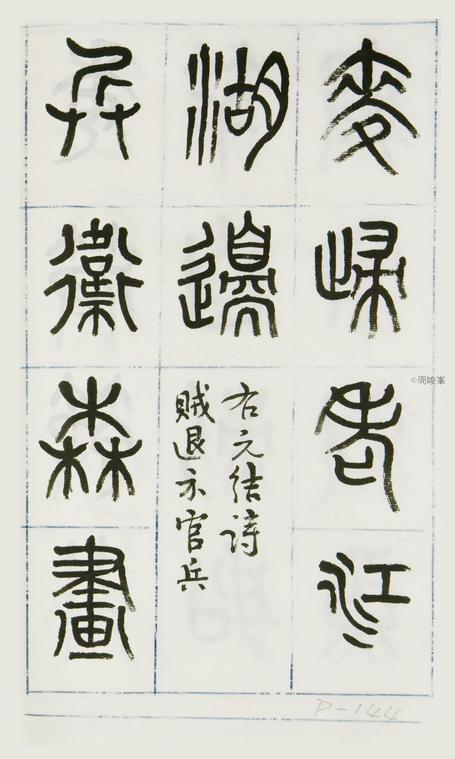 麥歸老江
湖邊
右元結詩
賊退示官兵
兵衛森畫
©周峻峯
P-144